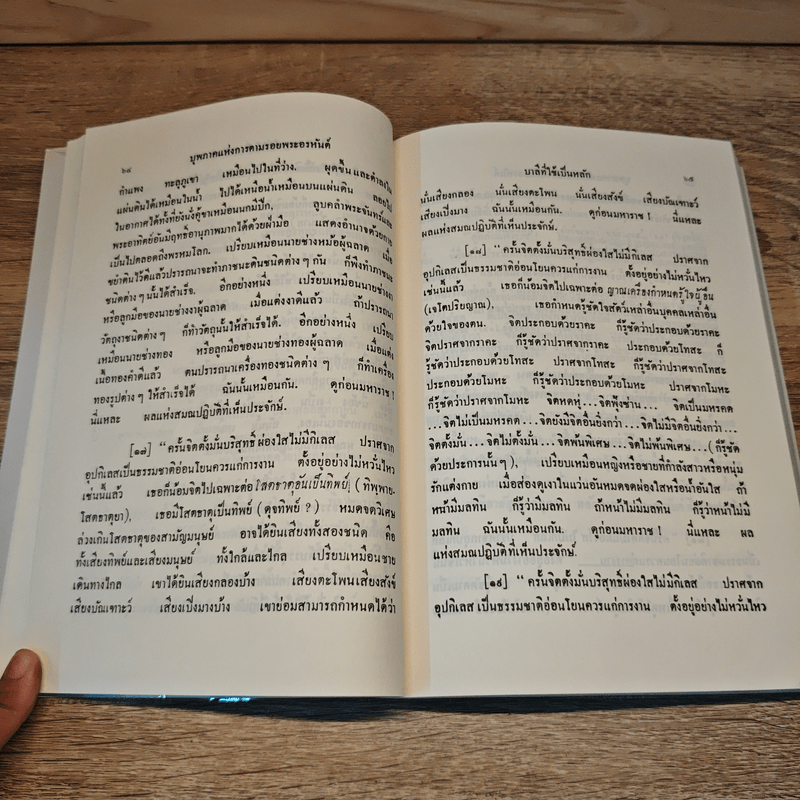 ๖๔ บุพภาคแห่งการตามรอยพระอรหันต์
กำแพง ทะลุภูเขา เหมือนไปในที่ว่าง. ผุดขึ้นและดำลงใน
แผ่นดินได้เหมือนในน้ำ ไปได้เหนือน้ำเหมือนบนแผ่นดิน ลอยไป
ในอากาศได้ทั้งที่ยังนั่งคู้ขาเหมือนนกมีปีก, ลูบคลำพระจันทร์และ
พระอาทิตย์อันมีฤทธิ์อานุภาพมากได้ด้วยฝ่ามือ แสดงอำนาจด้วยกาย
เป็นไปตลอดถึงพรหมโลก. เปรียบเหมือนนายช่างหม้อผู้ฉลาด เมื่อ
ขยำดินไว้ดีแล้วปรารถนาจะทำภาชนะดินชนิดต่าง ๆ กัน ก็พึงทำภาชนะ
ชนิดต่าง ๆ นั้นได้สำเร็จ. อีกอย่างหนึ่ง เปรียบเหมือนนายช่างงา
หรือลูกมือของนายช่างงาผู้ฉลาด เมื่อแต่งงาดีแล้ว ถ้าปรารถนา
วัตถุงาชนิดต่าง ๆ ก็ทำวัตถุนั้นให้สำเร็จได้. อีกอย่างหนึ่ง เปรียบ
เหมือนนายช่างทอง หรือลูกมือของนายช่างทองผู้ฉลาด เมื่อแต่ง
เนื้อทองคำดีแล้ว ตนปรารถนาเครื่องทองชนิดต่าง ๆ ก็ทำเครื่อง
ทองรูปต่าง ๆ ให้สำเร็จได้ ฉันนั้นเหมือนกัน. ดูก่อนมหาราช !
นี่แหละ ผลแห่งสมณปฏิบัติที่เห็นประจักษ์.
[๑๗] “ ครั้นจิตตั้งมั่นบริสุทธิ์ ผ่องใสไม่มีกิเลส ปราศจาก
อุปกิเลสเป็นธรรมชาติอ่อนโยนควรแก่การงาน ตั้งอยู่อย่างไม่หวั่นไหว
เช่นนี้แล้ว เธอก็น้อมจิตไปเฉพาะต่อโสตธาตุอันเป็นทิพย์ ( ทิพฺพาย-
โสตธาตุยา), เธอมีโสตธาตุเป็นทิพย์ ( ดุจทิพย์ ? ) หมดจดวิเศษ
ล่วงเกินโสตธาตุของสามัญมนุษย์ อาจได้ยินเสียงทั้งสองชนิด คือ
ทั้งเสียงทิพย์และเสียงมนุษย์ ทั้งใกล้และไกล เปรียบเหมือนชาย
เดินทางไกล เขาได้ยินเสียงกลองบ้าง เสียงตะโพนเสียงสังข์
เสียงบัณเฑาะว์ เสียงเปิงมางบ้าง เขาย่อมสามารถกำหนดได้ว่า
บาลีที่ใช้เป็นหลัก ๖๕
นั่นเสียงกลอง นั่นเสียงตะโพน นั่นเสียงสังข์ เสียงบัณเฑาะว์
เสียงเปิงมาง ฉันนั้นเหมือนกัน. ดูก่อนมหาราช ! นี่แหละ
ผลแห่งสมณปฏิบัติที่เห็นประจักษ์.
[๑๘] “ ครั้นจิตตั้งมั่นบริสุทธิ์ผ่องใสไม่มีกิเลส ปราศจาก
อุปกิเลสเป็นธรรมชาติอ่อนโยนควรแก่การงาน ตั้งอยู่อย่างไม่หวั่นไหว
เช่นนี้แล้ว เธอก็น้อมจิตไปเฉพาะต่อ ญาณเครื่องกำหนดรู้ใจผู้อื่น
(เจโตปริยญาณ), เธอกำหนดรู้ชัดใจสัตว์เหล่าอื่นบุคคลเหล่าอื่น
ด้วยใจของตน. จิตประกอบด้วยราคะ ก็รู้ชัดว่าประกอบด้วยราคะ
จิตปราศจากราคะ ก็รู้ชัดว่าปราศจากราคะ จิตประกอบด้วยโทสะ ก็
รู้ชัดว่าประกอบด้วยโทสะ ปราศจากโทสะ ก็รู้ชัดว่าปราศจากโทสะ
ประกอบด้วยโมหะ ก็รู้ชัดว่าประกอบด้วยโมหะ ปราศจากโมหะ
ก็รู้ชัดว่าปราศจากโมหะ จิตหดหู่…จิตฟุ้งซ่าน… จิตเป็นมหรคต
…จิตไม่เป็นมหรคต…จิตยังมีจิตอื่นยิ่งกว่า…จิตไม่มีจิตอื่นยิ่งกว่า…
จิตตั้งมั่น…จิตไม่ตั้งมั่น…จิตพ้นพิเศษ…จิตไม่พ้นพิเศษ…( ก็รู้ชัด
ด้วยประการนั้น ๆ ), เปรียบเหมือนหญิงหรือชายที่กำลังสาวหรือหนุ่ม
รักแต่งกาย เมื่อส่องดูเงาในแว่นอันหมดจดผ่องใสหรือน้ำอันใส ถ้า
หน้ามีมลทิน ก็รู้ว่ามีมลทิน ถ้าหน้าไม่มีมลทิน ก็รู้ว่าหน้าไม่มี
มลทิน ฉันนั้นเหมือนกัน. ดูก่อนมหาราช ! นี่แหละ ผล
แห่งสมณปฏิบัติที่เห็นประจักษ์.
[๑๙] “ ครั้นจิตตั้งมั่นบริสุทธิ์ผ่องใสไม่มีกิเลส ปราศจาก
อุปกิเลส เป็นธรรมชาติอ่อนโยนควรแก่การงาน ตั้งอยู่อย่างไม่หวั่นไหว